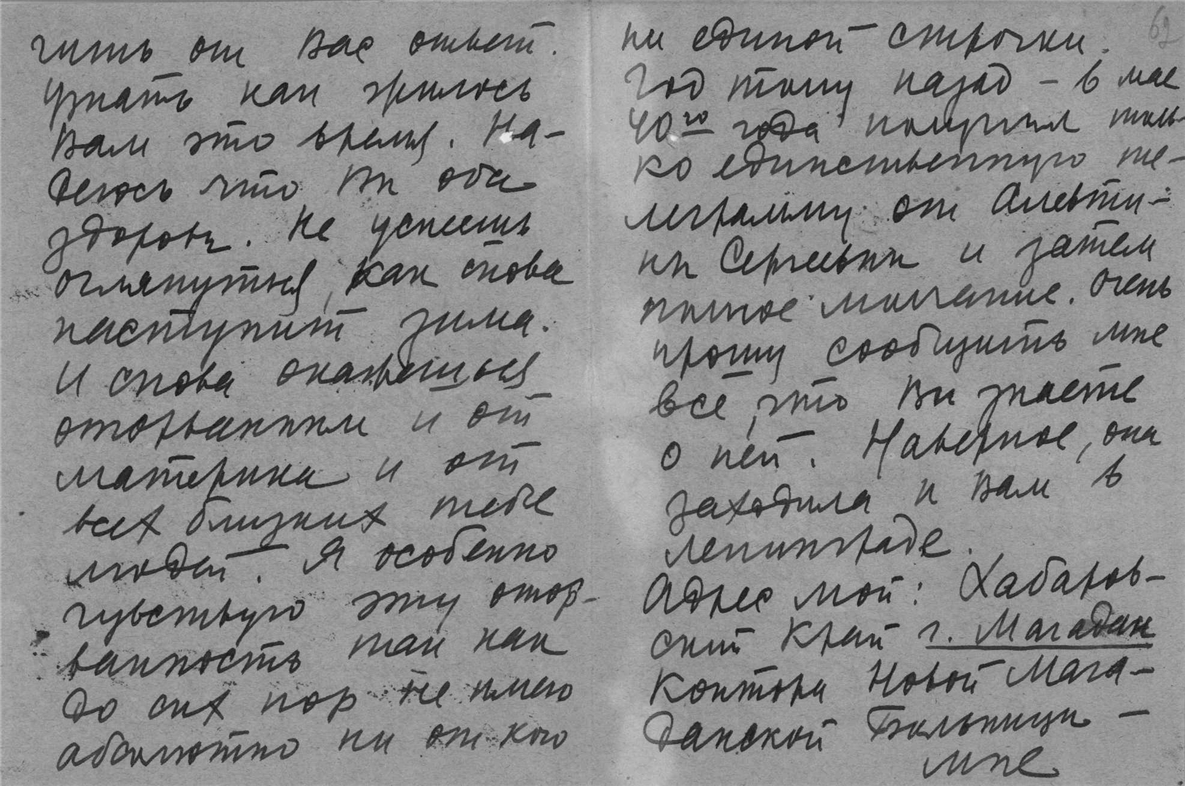 чить от Вас ответ.
Узнать как жилось
Вам это время. На-
деюсь что Вы оба
здоровы. Не успеешь
оглянуться, как снова
наступит зима.
И снова окажешься
оторванным и от
материка и от
всех близких тебе
людей. Я особенно
чувствую эту отор-
ванность так как
до сих пор не имею
абсолютно ни от кого
ни единой строчки.
Год тому назад – в мае
40го года получил толь-
ко единственную те-
леграмму от Алевти-
ны Сергеевны и затем
полное молчание. Очень
прошу сообщить мне
всё, что Вы знаете
о ней. Наверное, она
заходила к Вам в
Ленинграде.
Адрес мой: Хабаров-
ский Край г. Магадан
Контора Новой Мага-
данской Больницы –
мне
62